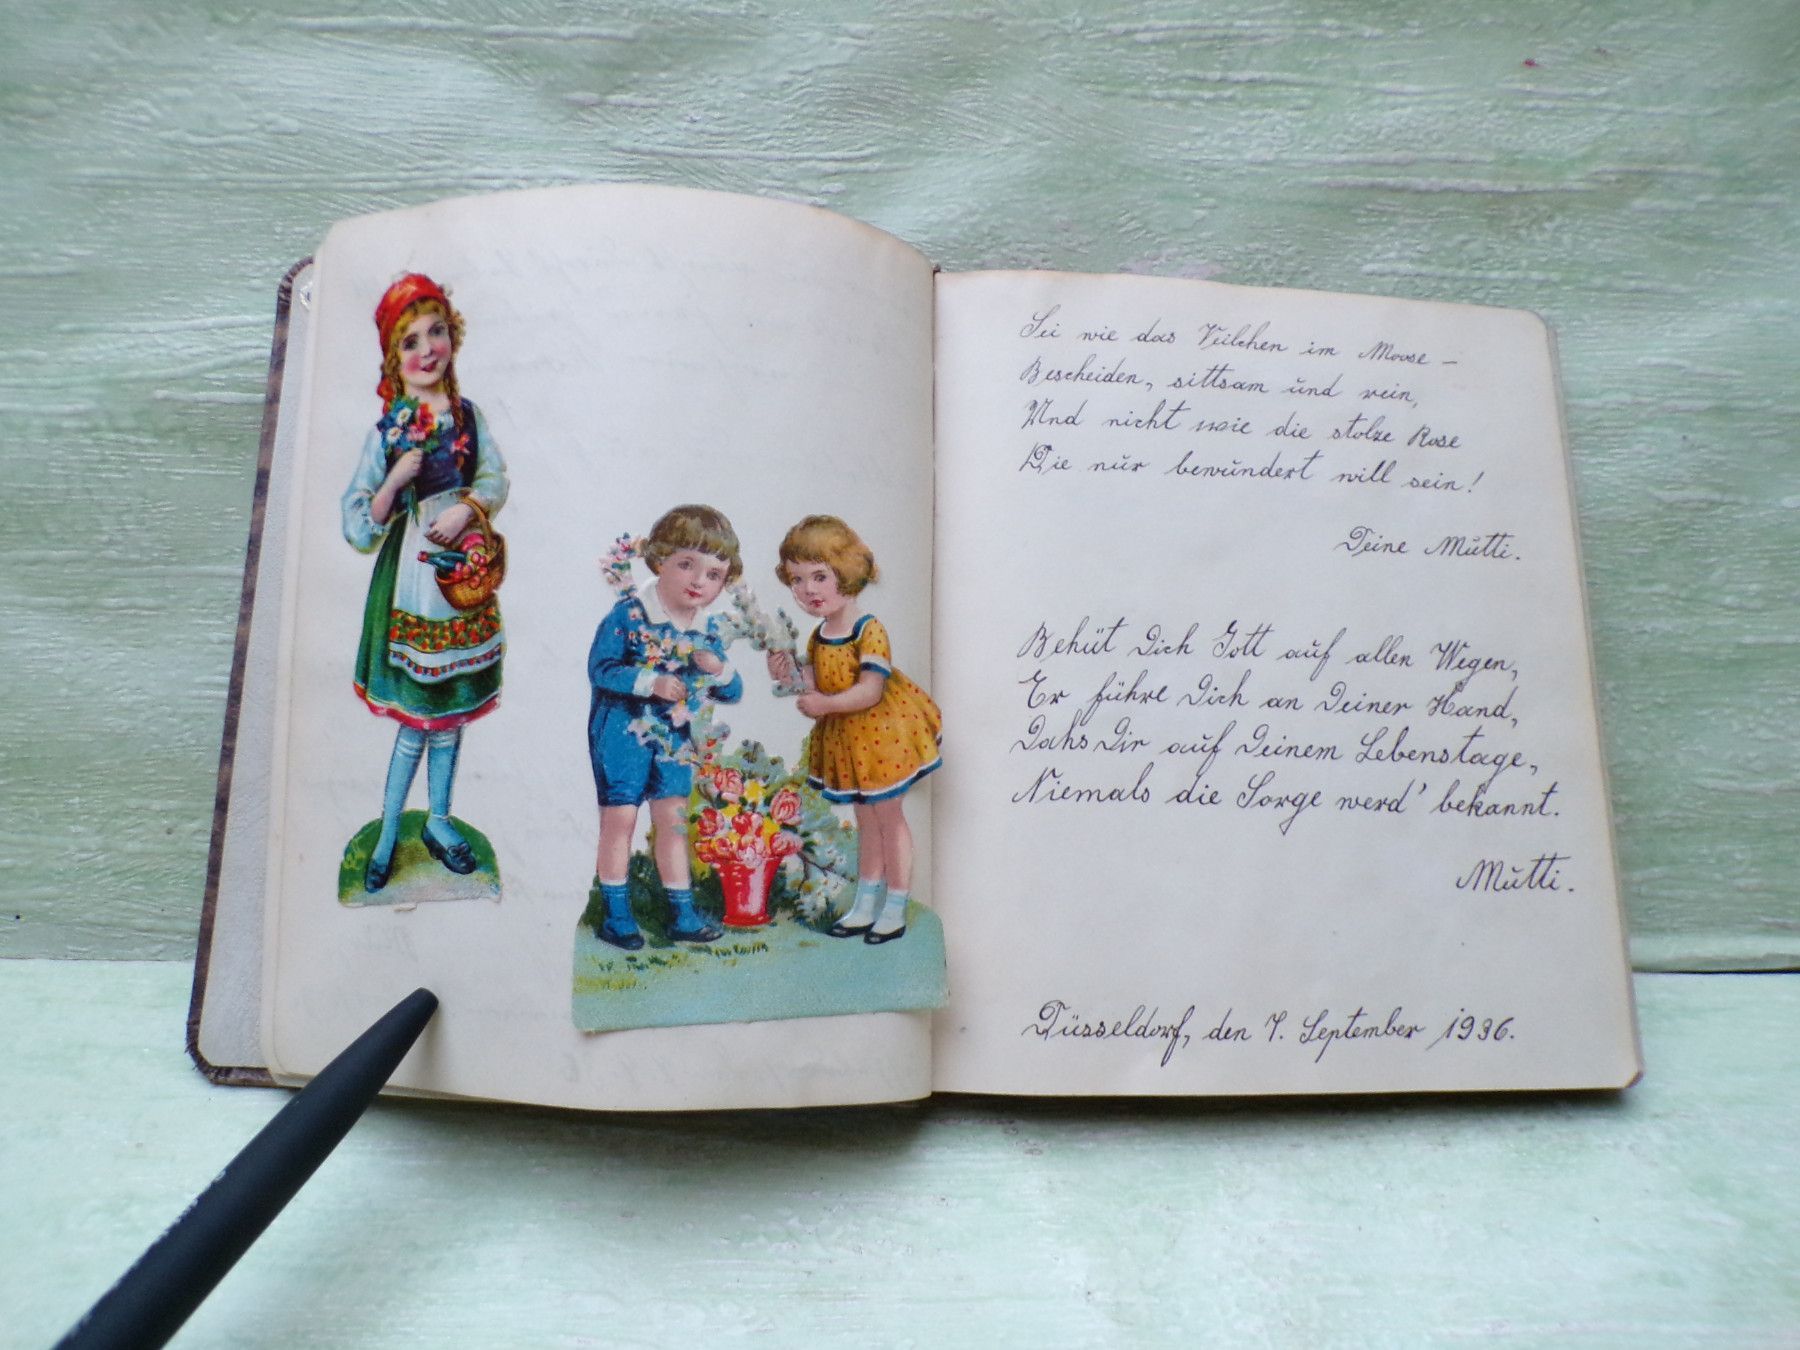 Sei wie das Veilchen im Moose –
Bescheiden, sittsam und rein,
Und nicht wie die stolze Rose
Die nur bewundert will sein!
Deine Mutti.
Behüt Dich Gott auf allen Wegen,
Er führe Dich an Deiner Hand,
Dahs Dir auf Deinem Lebenstage,
Niemals die Sorge werd' bekannt.
Mutti.
Düsseldorf, den 7. September 1936.